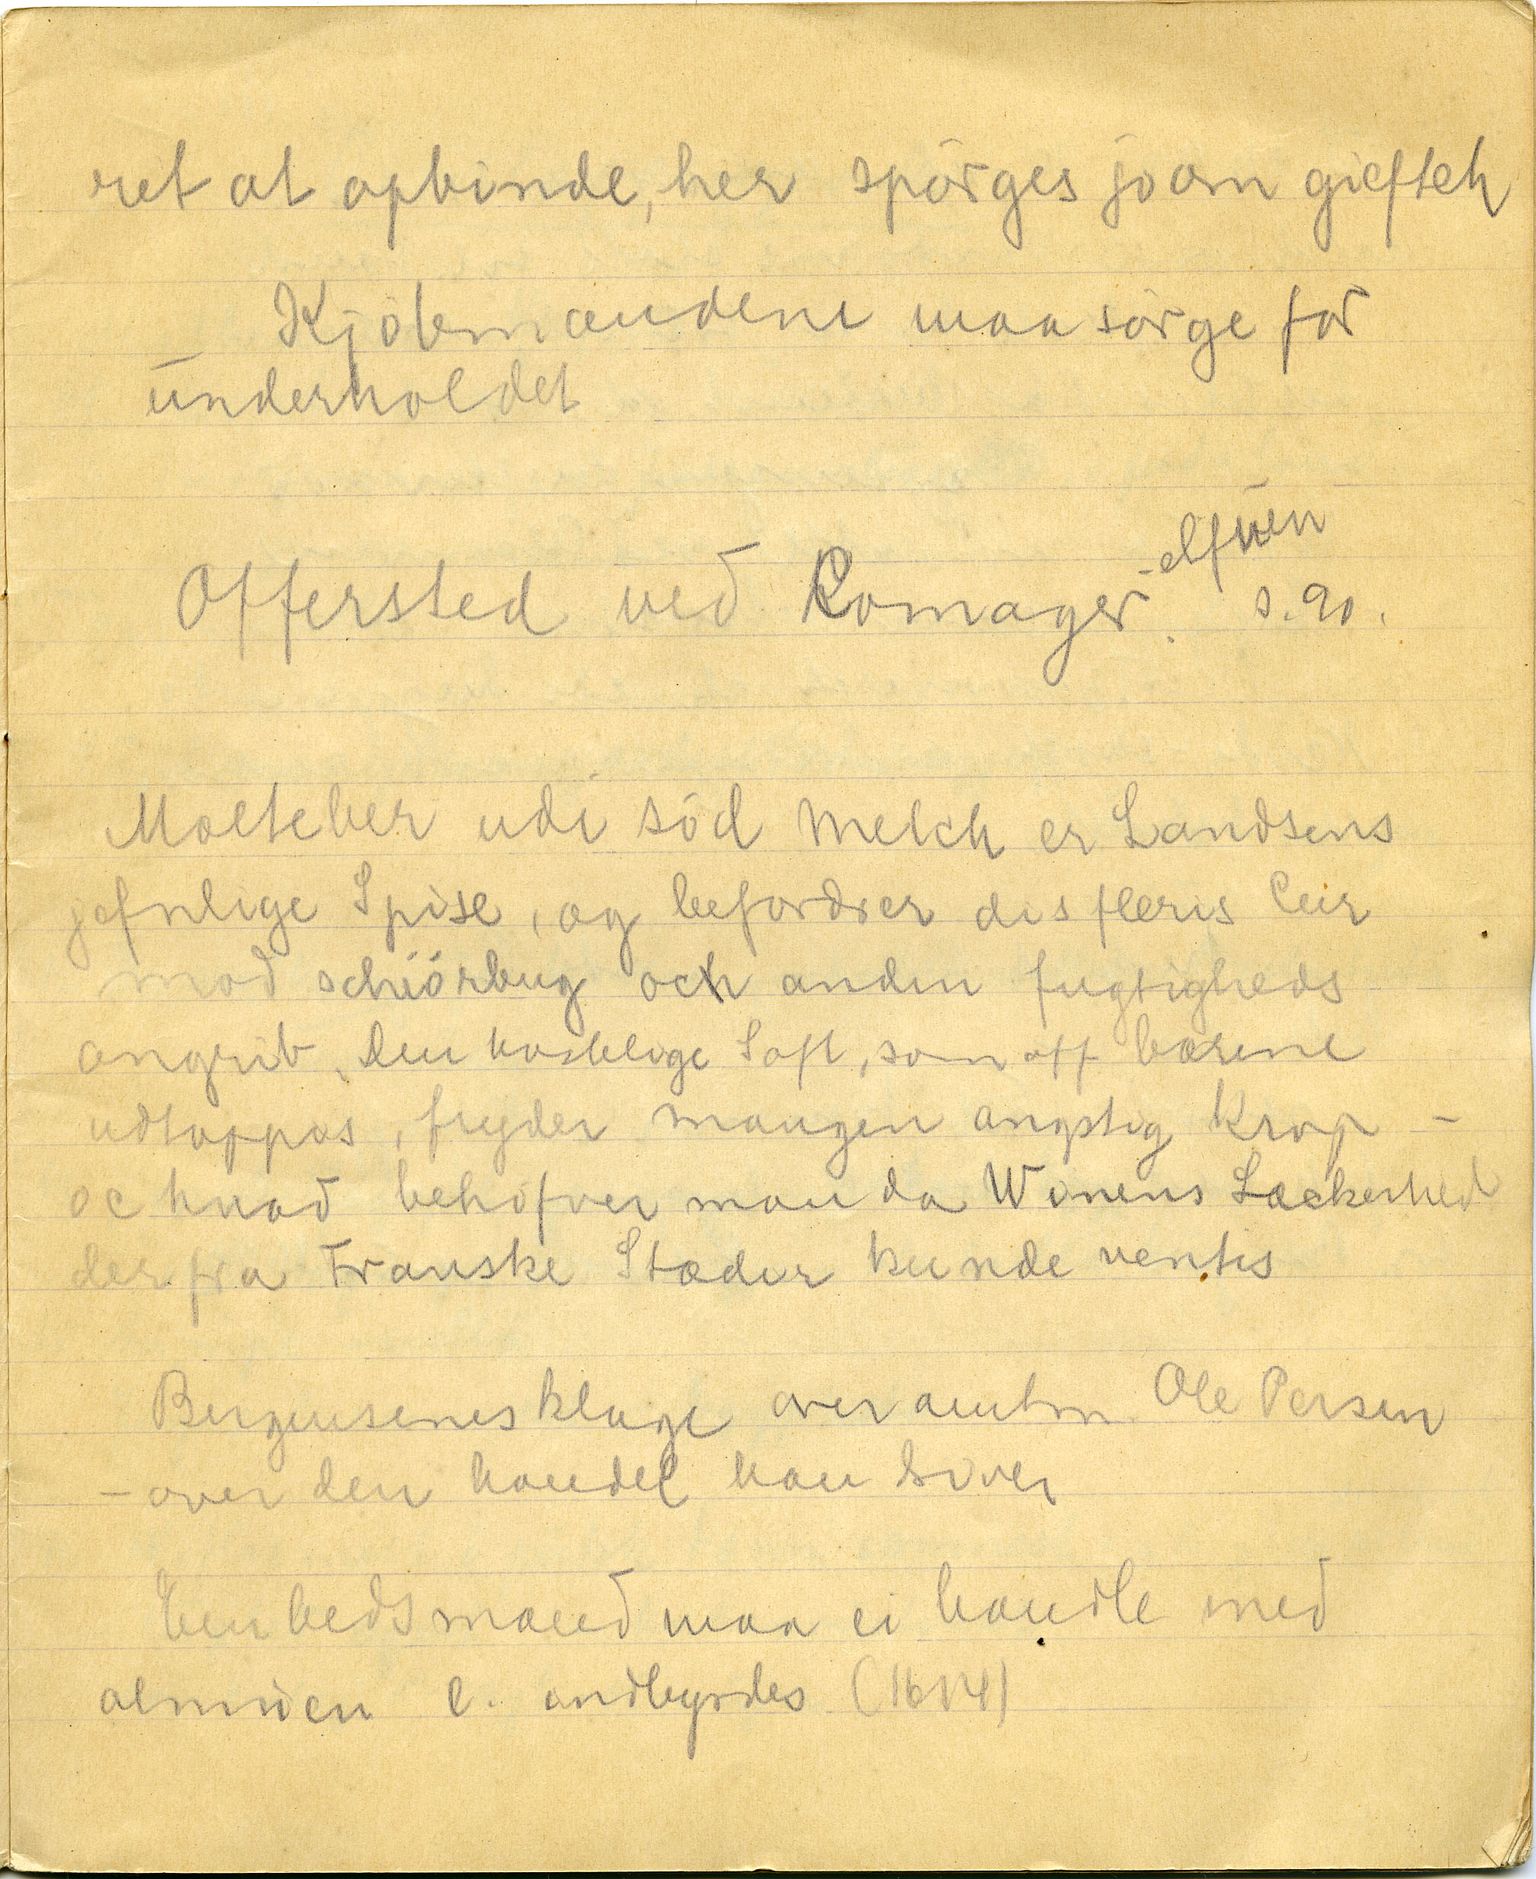 ret at opbinde, her spørges jo om giefteh
Kjøbmændene maa sørge for
underholdet
Offersted ved Komager-elfven s. 90.
Molteber udi sød Melch er Landsens
jefnlige Spise, og befordrer dis fleris Leir
mod schiørbug och anden fugtigheds
angrib, den kostelige Saft, som aff bærene
udtappas, fryder mangen angstig Krop –
oc hvad behøfver man da Winens Lackerhed
der fra Franske Stæder kunde ventis
Bergensenes klage over amtm. Ole Persen
– over den handel han driver
Embedsmænd maa ei handle med
almuen e. andbyrdes (1614)